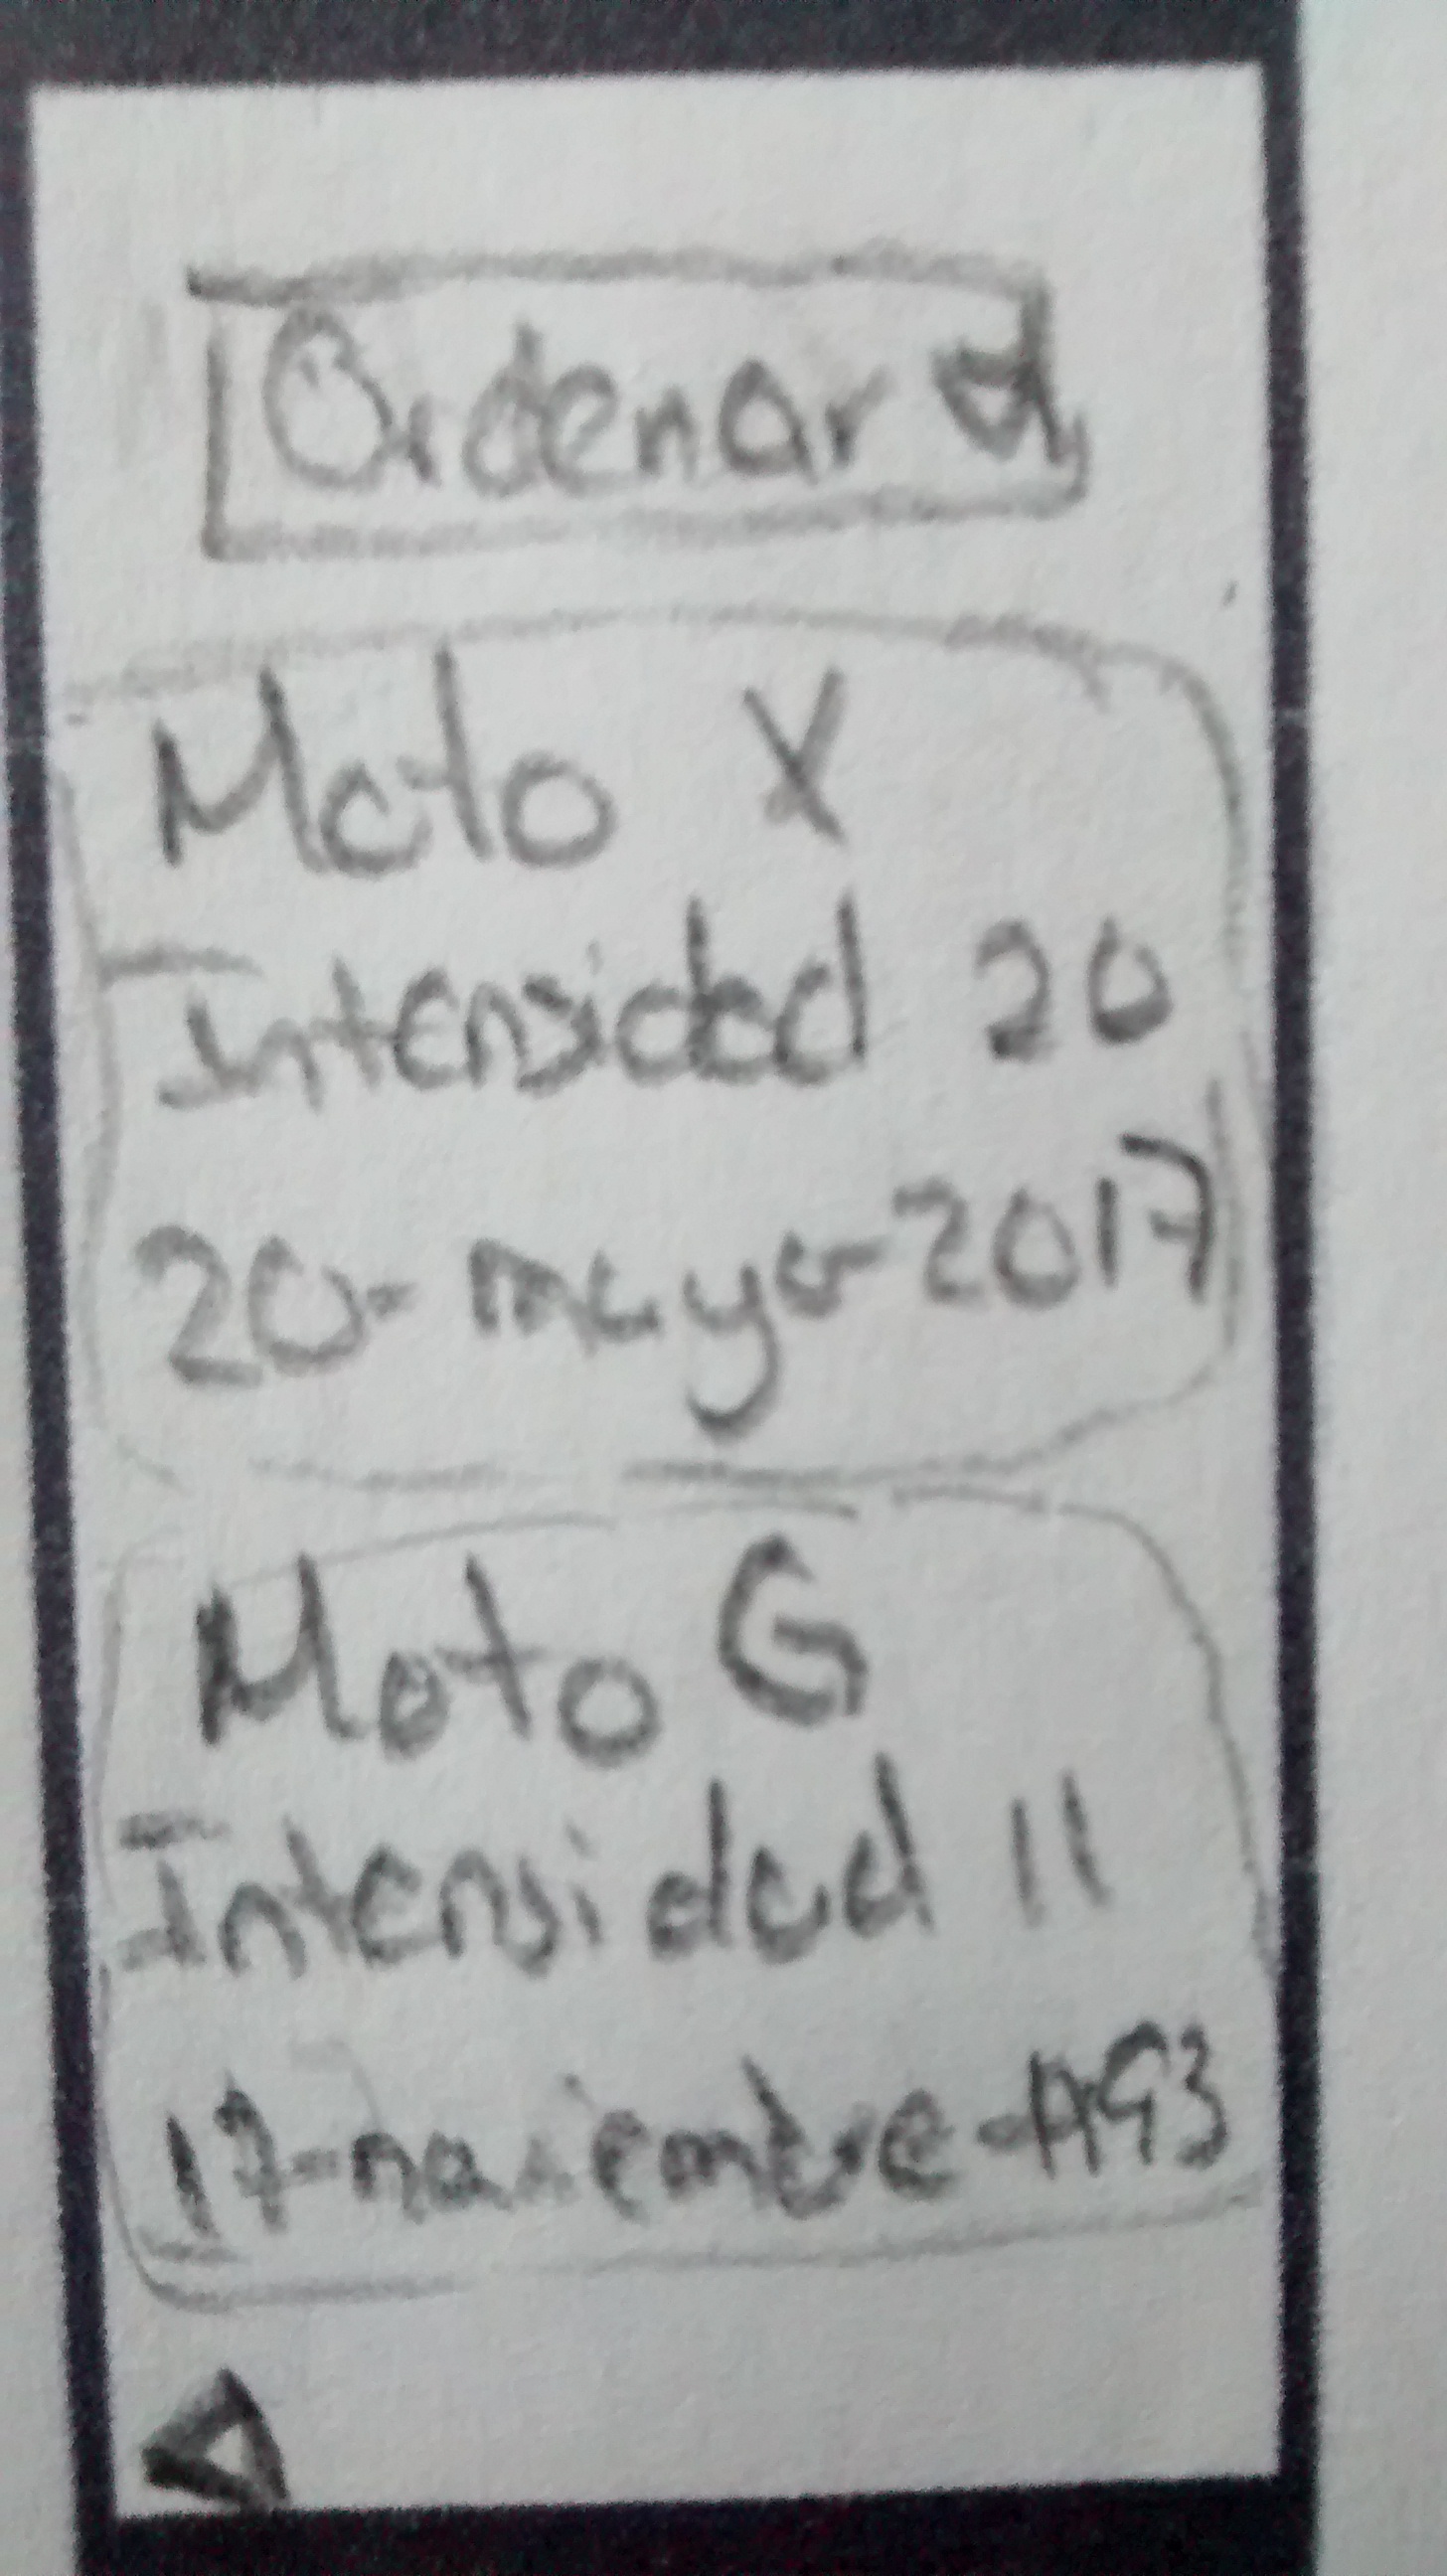 Ordenar
Moto X
Intensidad 20
20-mayo-2017
Moto G
Intensidad 11
17-noviembre-1993